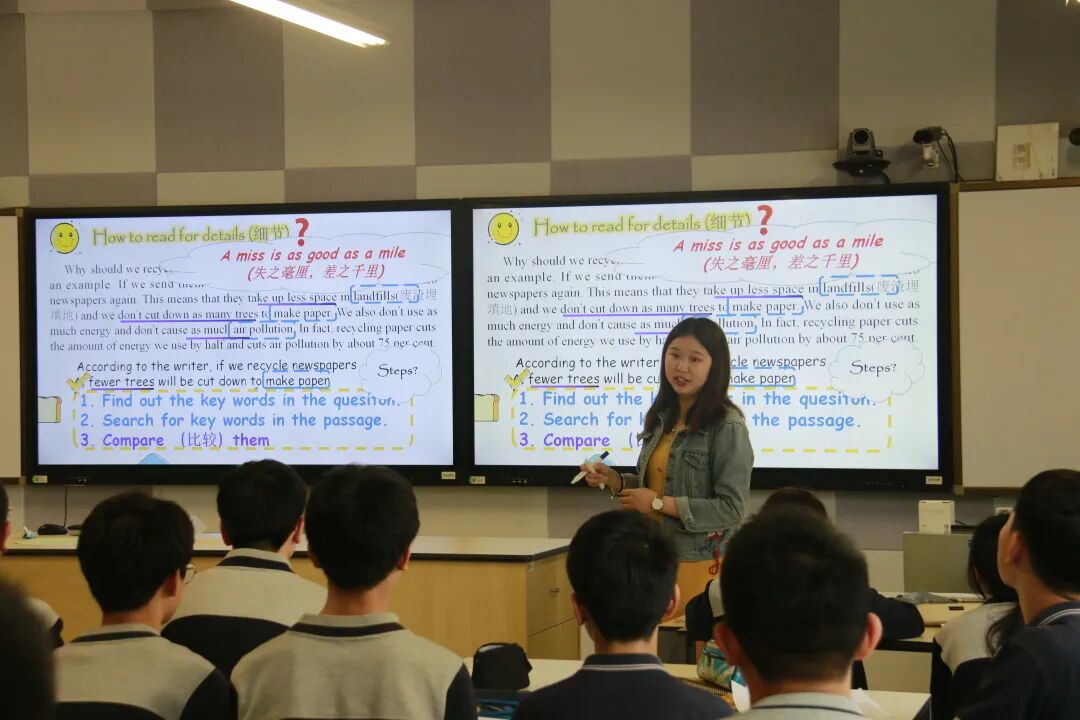 How to read for details (细节)
?
A miss is as good as a mile
(失之毫厘，差之千里)
Why should we
an example. If we send
newspapers again. This means that they take up less space in landfills(废渣埋
填地) and we don't cut down as many trees to make paper. We also don't use as
much energy and don't cause as much air pollution. In fact, recycling paper cuts
the amount of energy we use by half and cuts air pollution by about 75 per cent.
According to the writer, if we recycle newspapers
fewer trees will be cut down to make paper
Steps?
1. Find out the key words in the quesiton.
2. Search for key words in the passage.
3. Compare （比较) them
How to read for details (细节)
?
A miss is as good as a mile
(失之毫厘，差之千里)
Why should we
an example. If we send
newspapers again. This means that they take up less space in landfills(废渣埋
填地) and we don't cut down as many trees to make paper. We also don't use as
much energy and don't cause as pollution. In fact, recycling paper cuts
the amount of energy we use by air pollution by about 75 per cent.
According to the writer newspapers
fewer trees will be cut make paper
Steps?
1. Find out the in the quesiton.
2. Search for in the passage.
3. Compare